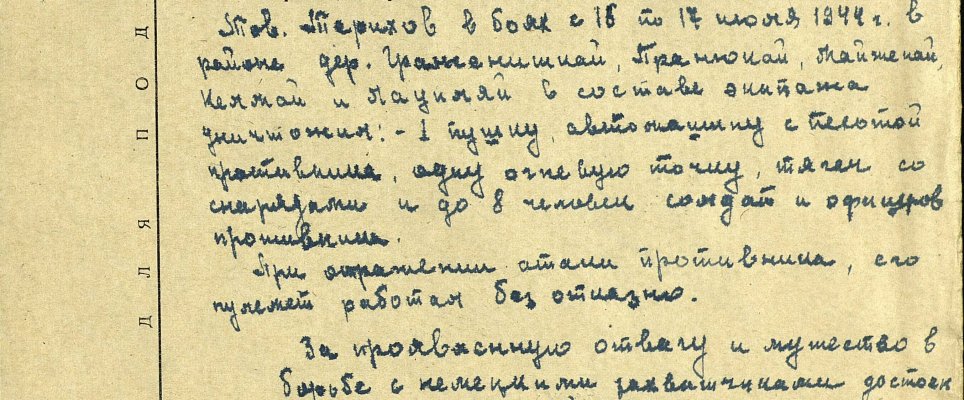 Тов. Терихов в боях с 16 по 17 июля 1944 г. в
районе дер. Гражанишкай, Пранюкай, Майжекай,
Келмай и Лацкляй в составе экипажа
уничтожил: - 1 пушку, автомашину с пехотой
противника, одну огневую точку, тягач со
снарядами и до 8 человек солдат и офицеров
противника.
При отражении атаки противника, его
пулемет работал без отказно.
За проявленную отвагу и мужество в
борьбе с немецкими захватчиками достоен
ДЛЯ ПОД